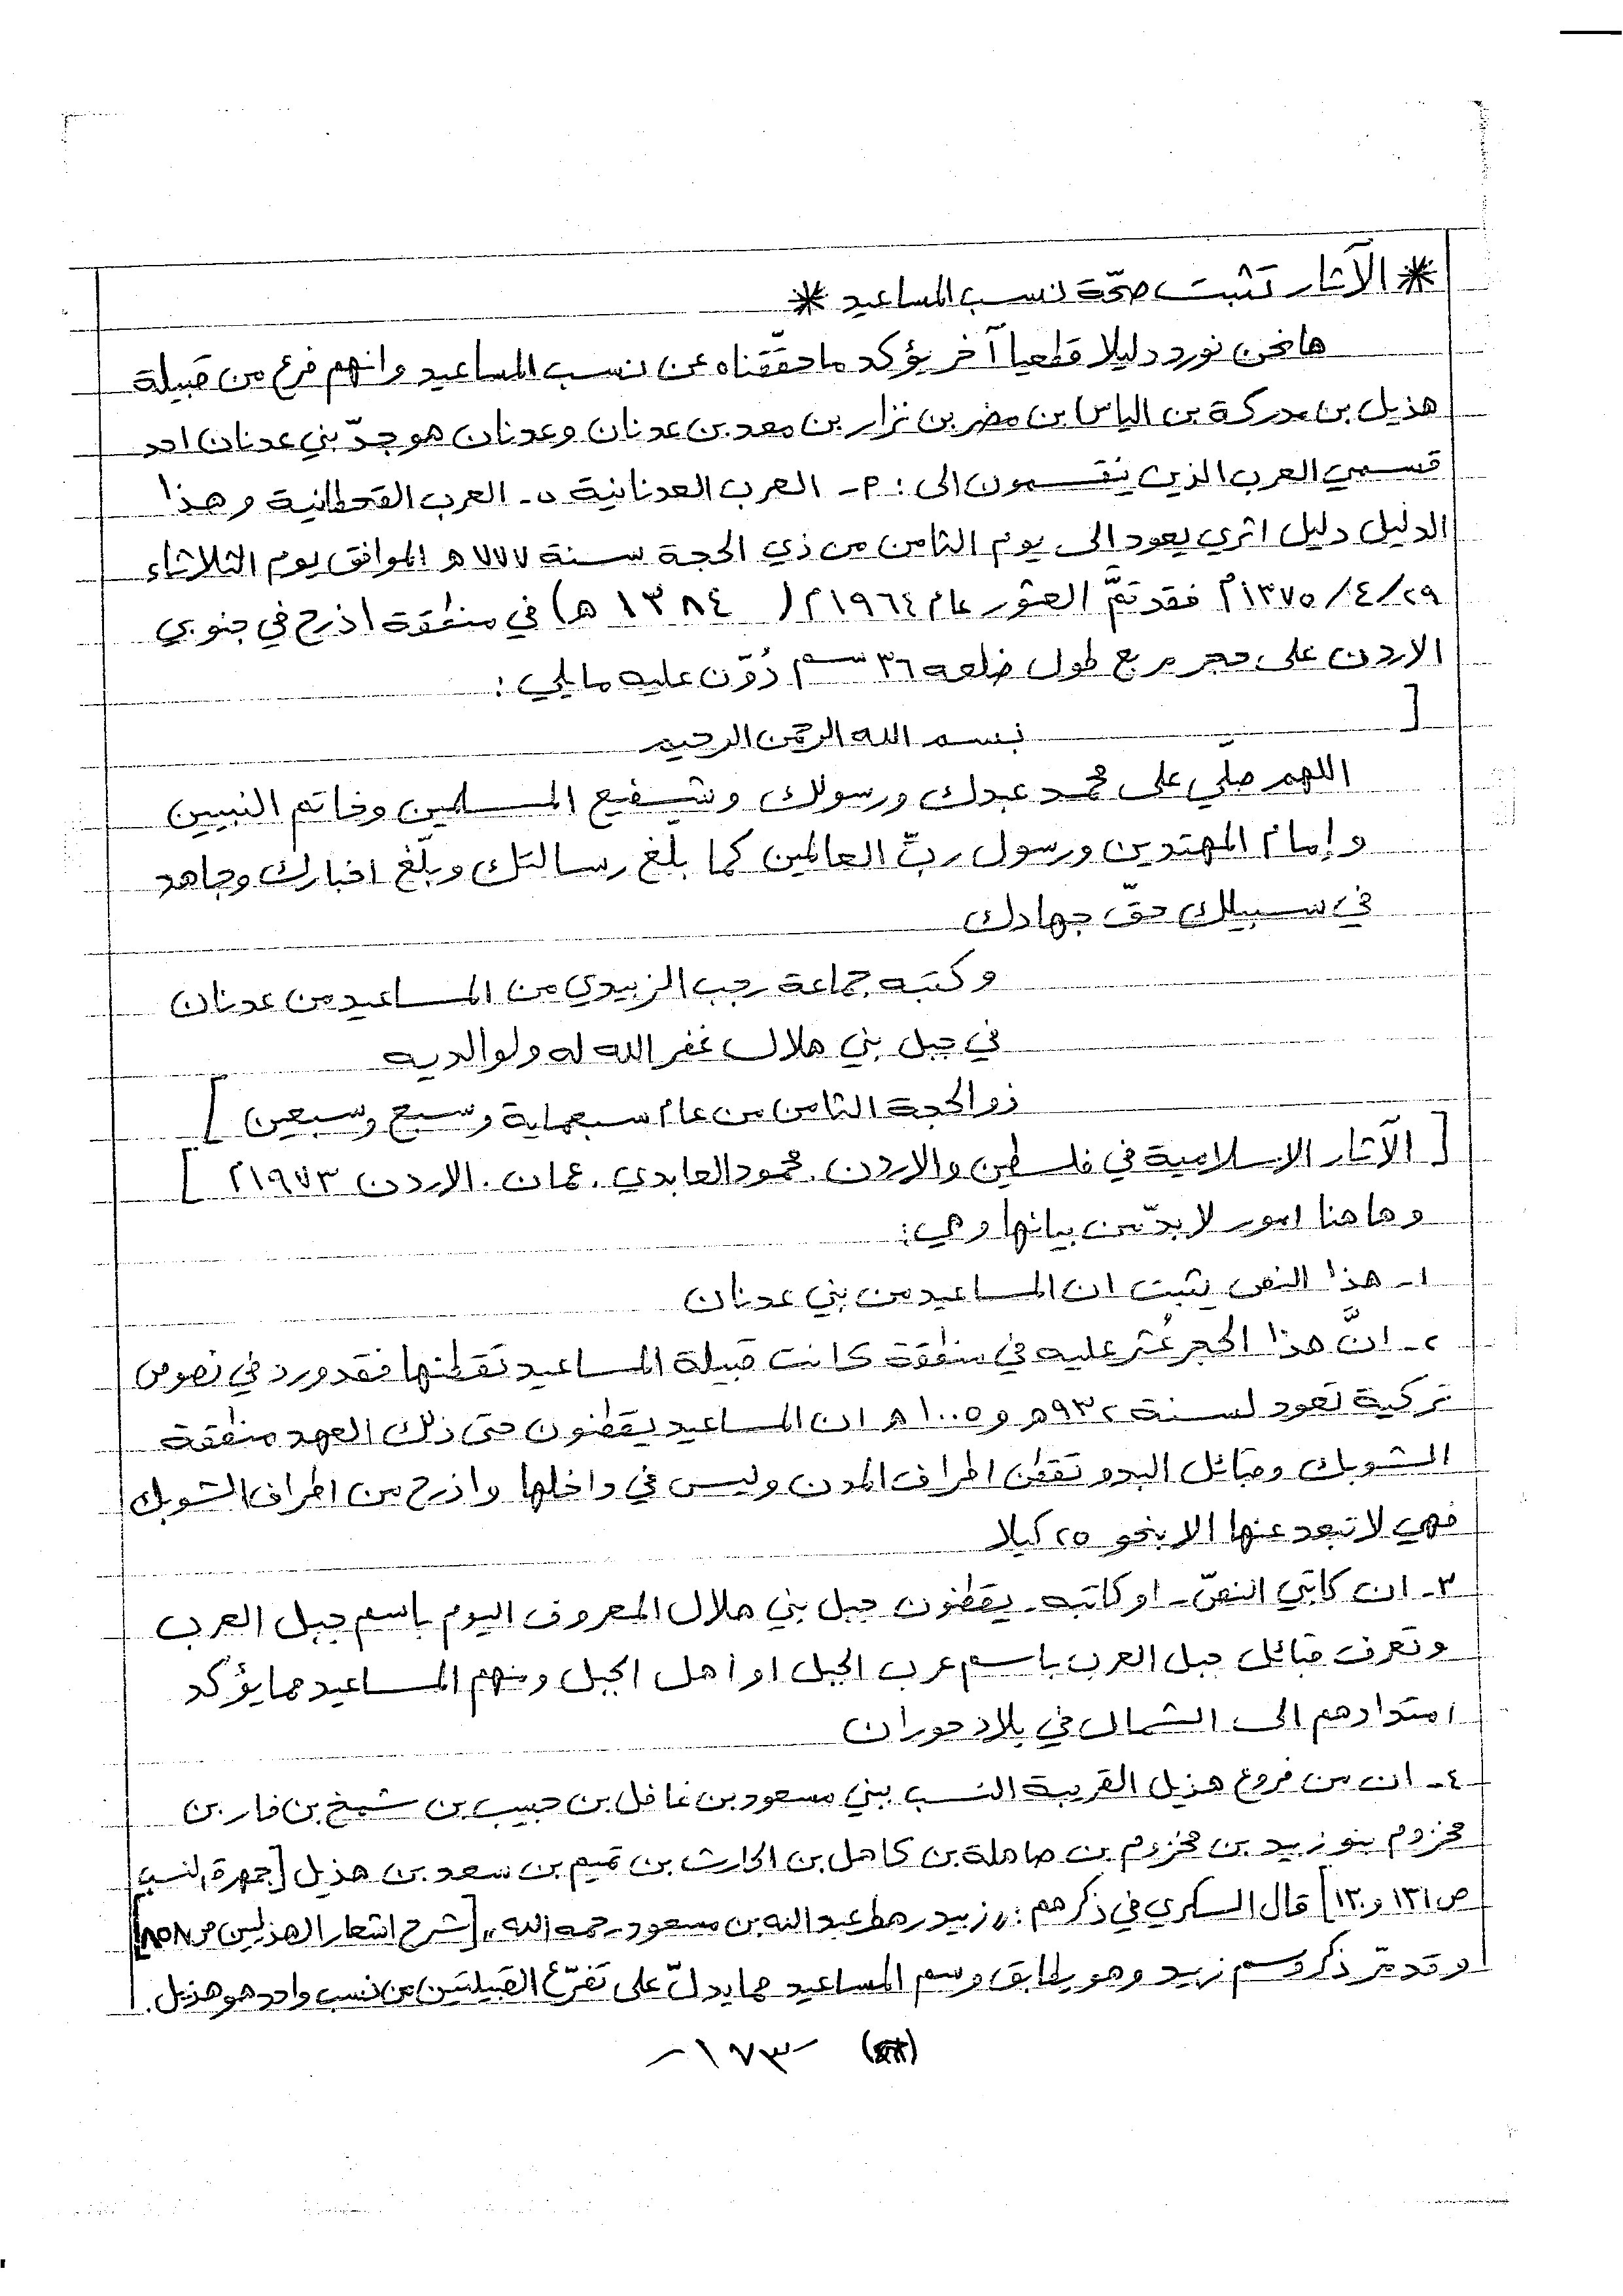 * الآثار تثبت صحّة نسب المساعيد *
ها نحن نورد دليلا قطعيا آخر يؤكد ما حققّناه عن نسب المساعيد وانهم فرع من قبيلة
هذيل بن مدركة بن الياس بن مضر بن نزار بن معد بن عدنان وعدنان هو جدّ بني عدنان احد
قسمي العرب الذين ينقسمون الى : ٢- العرب العدنانية ٥- العرب القحطانية وهذا
الدليل دليل اثري يعود الى يوم الثامن من ذي الحجة سنة ٧٧٧ هـ الموافق يوم الثلاثاء
٢٩/٤/١٣٧٥م فقد تمَّ العثور عام ١٩٦٤م ( ١٣٨٤ هـ) في منطقة اذرح في جنوبي
الاردن على حجر مربع طول ضلعه ٣٦ سم دُوّن عليه ما يلي :
[ بسم الله الرحمن الرحيم
اللهم صلّي على محمد عبدك ورسولك وشفيع المسلمين وخاتم النبيين
وإمام المهتدين ورسول ربّ العالمين كما بلغ رسالتك وبلّغ اخبارك وجاهد
في سبيلك حقّ جهادك
وكتبه جماعة رجب الزبيدي من المساعيد من عدنان
في جبل بني هلال غفر الله له ولوالديه
ذو الحجة الثامن من عام سبعماية وسبع وسبعين ]
[ الآثار الاسلامية في فلسطين والاردن . محمود العابدي . عمان . الاردن ١٩٧٣م ]
وها هنا امور لا بدّ من بيانها وهي :
١- هذا النص يثبت ان المساعيد من بني عدنان
٢- انَّ هذا الحجر عُثر عليه في منطقة كانت قبيلة المساعيد تقطنها فقد ورد في نصوص
تركية تعود لسنة ٩٣٢هـ و ١٠٠٥هـ ان المساعيد يقطنون حتى ذلك العهد منطقة
الشوبك وقبائل البدو تقطن اطراف المدن وليس في داخلها واذرح من اطراف الشوبك
فهي لا تبعد عنها الا بنحو ٢٥ كيلا
٣- ان كاتبي النصّ - او كاتبه - يقطنون جبل بني هلال المعروف اليوم باسم جبل العرب
وتعرف قبائل جبل العرب باسم عرب الجبل او اهل الجبل ومنهم المساعيد مما يؤكد
امتدادهم الى الشمال في بلاد حوران
٤- ان من فروع هذيل القريبة النسب ببني مسعود بن غافل بن حبيب بن شمخ بن فار بن
مخزوم بنو زبيد بن مخزوم بن صاهلة بن كاهل بن الحارث بن تميم بن سعد بن هذيل [جمهرة النسب
ص ١٣١ و ١٣٠] قال السكري في ذكرهم : "زبيد رهط عبد الله بن مسعود رحمه الله" [شرح اشعار الهذليين ص ٨٥٨]
وقد مرّ ذكر وسم زبيد وهو يطابق وسم المساعيد مما يدلّ على تفرّع القبيلتين من نسب واحد هو هذيل .
- ١٧٣ -